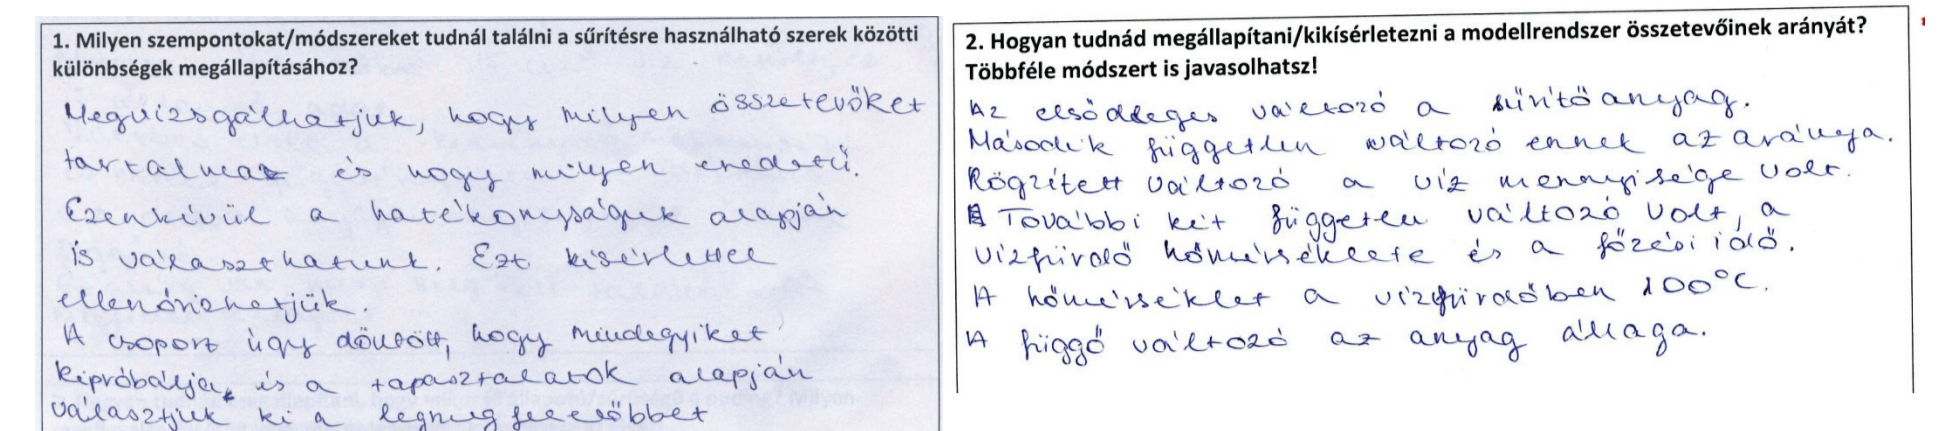 1. Milyen szempontokat/módszereket tudnál találni a sűrítésre használható szerek közötti
különbségek megállapításához?
Megvizsgálhatjuk, hogy milyen összetevőket
tartalmaz és hogy milyen eredetű.
Ezenkívül a hatékonyságuk alapján
is választhatunk. Ezt kísérlettel
ellenőrizhetjük.
A csoport úgy döntött, hogy mindegyiket
kipróbálja, és a tapasztalatok alapján
választjuk ki a legmegfelelőbbet
2. Hogyan tudnád megállapítani/kikísérletezni a modellrendszer összetevőinek arányát?
Többféle módszert is javasolhatsz!
Az elsődleges változó a sűrítőanyag.
Második független változó ennek az aránya.
Rögzített változó a víz mennyisége volt.
További két független változó volt, a
vízfürdő hőmérséklete és a főzési idő.
A hőmérséklet a vízfürdőben 100°C.
A függő változó az anyag állaga.